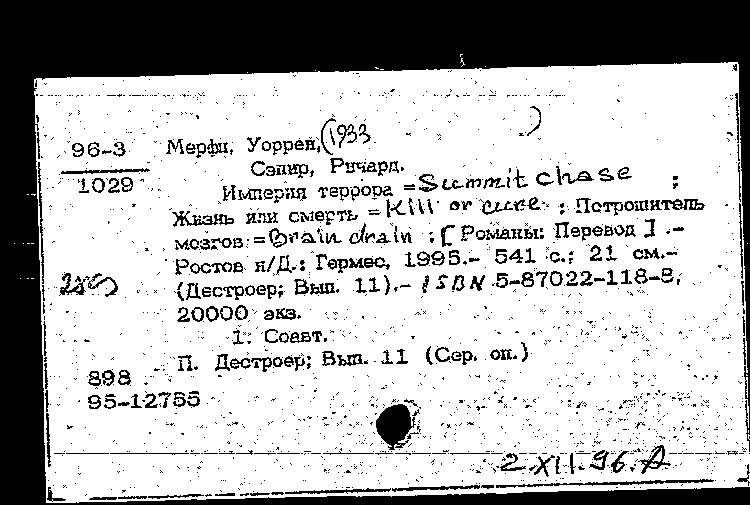 96-3 Мерфи, Уоррен, (1933 )
1029 Сэпир, Ричард.
Империя террора = Summit chase ;
Жизнь или смерть = Kill or cure ; Потрошитель
мозгов = Brain drain : [ Романы: Перевод ] .-
Ростов н/Д.: Гермес, 1995.- 541 с.; 21 см.-
(Дестроер; Вып. 11).- ISBN 5-87022-118-8,
20000 экз.
1. Соавт.
П. Дестроер; Вып. 11 (Сер. оп.)
898
95-12755
2.XII.96.